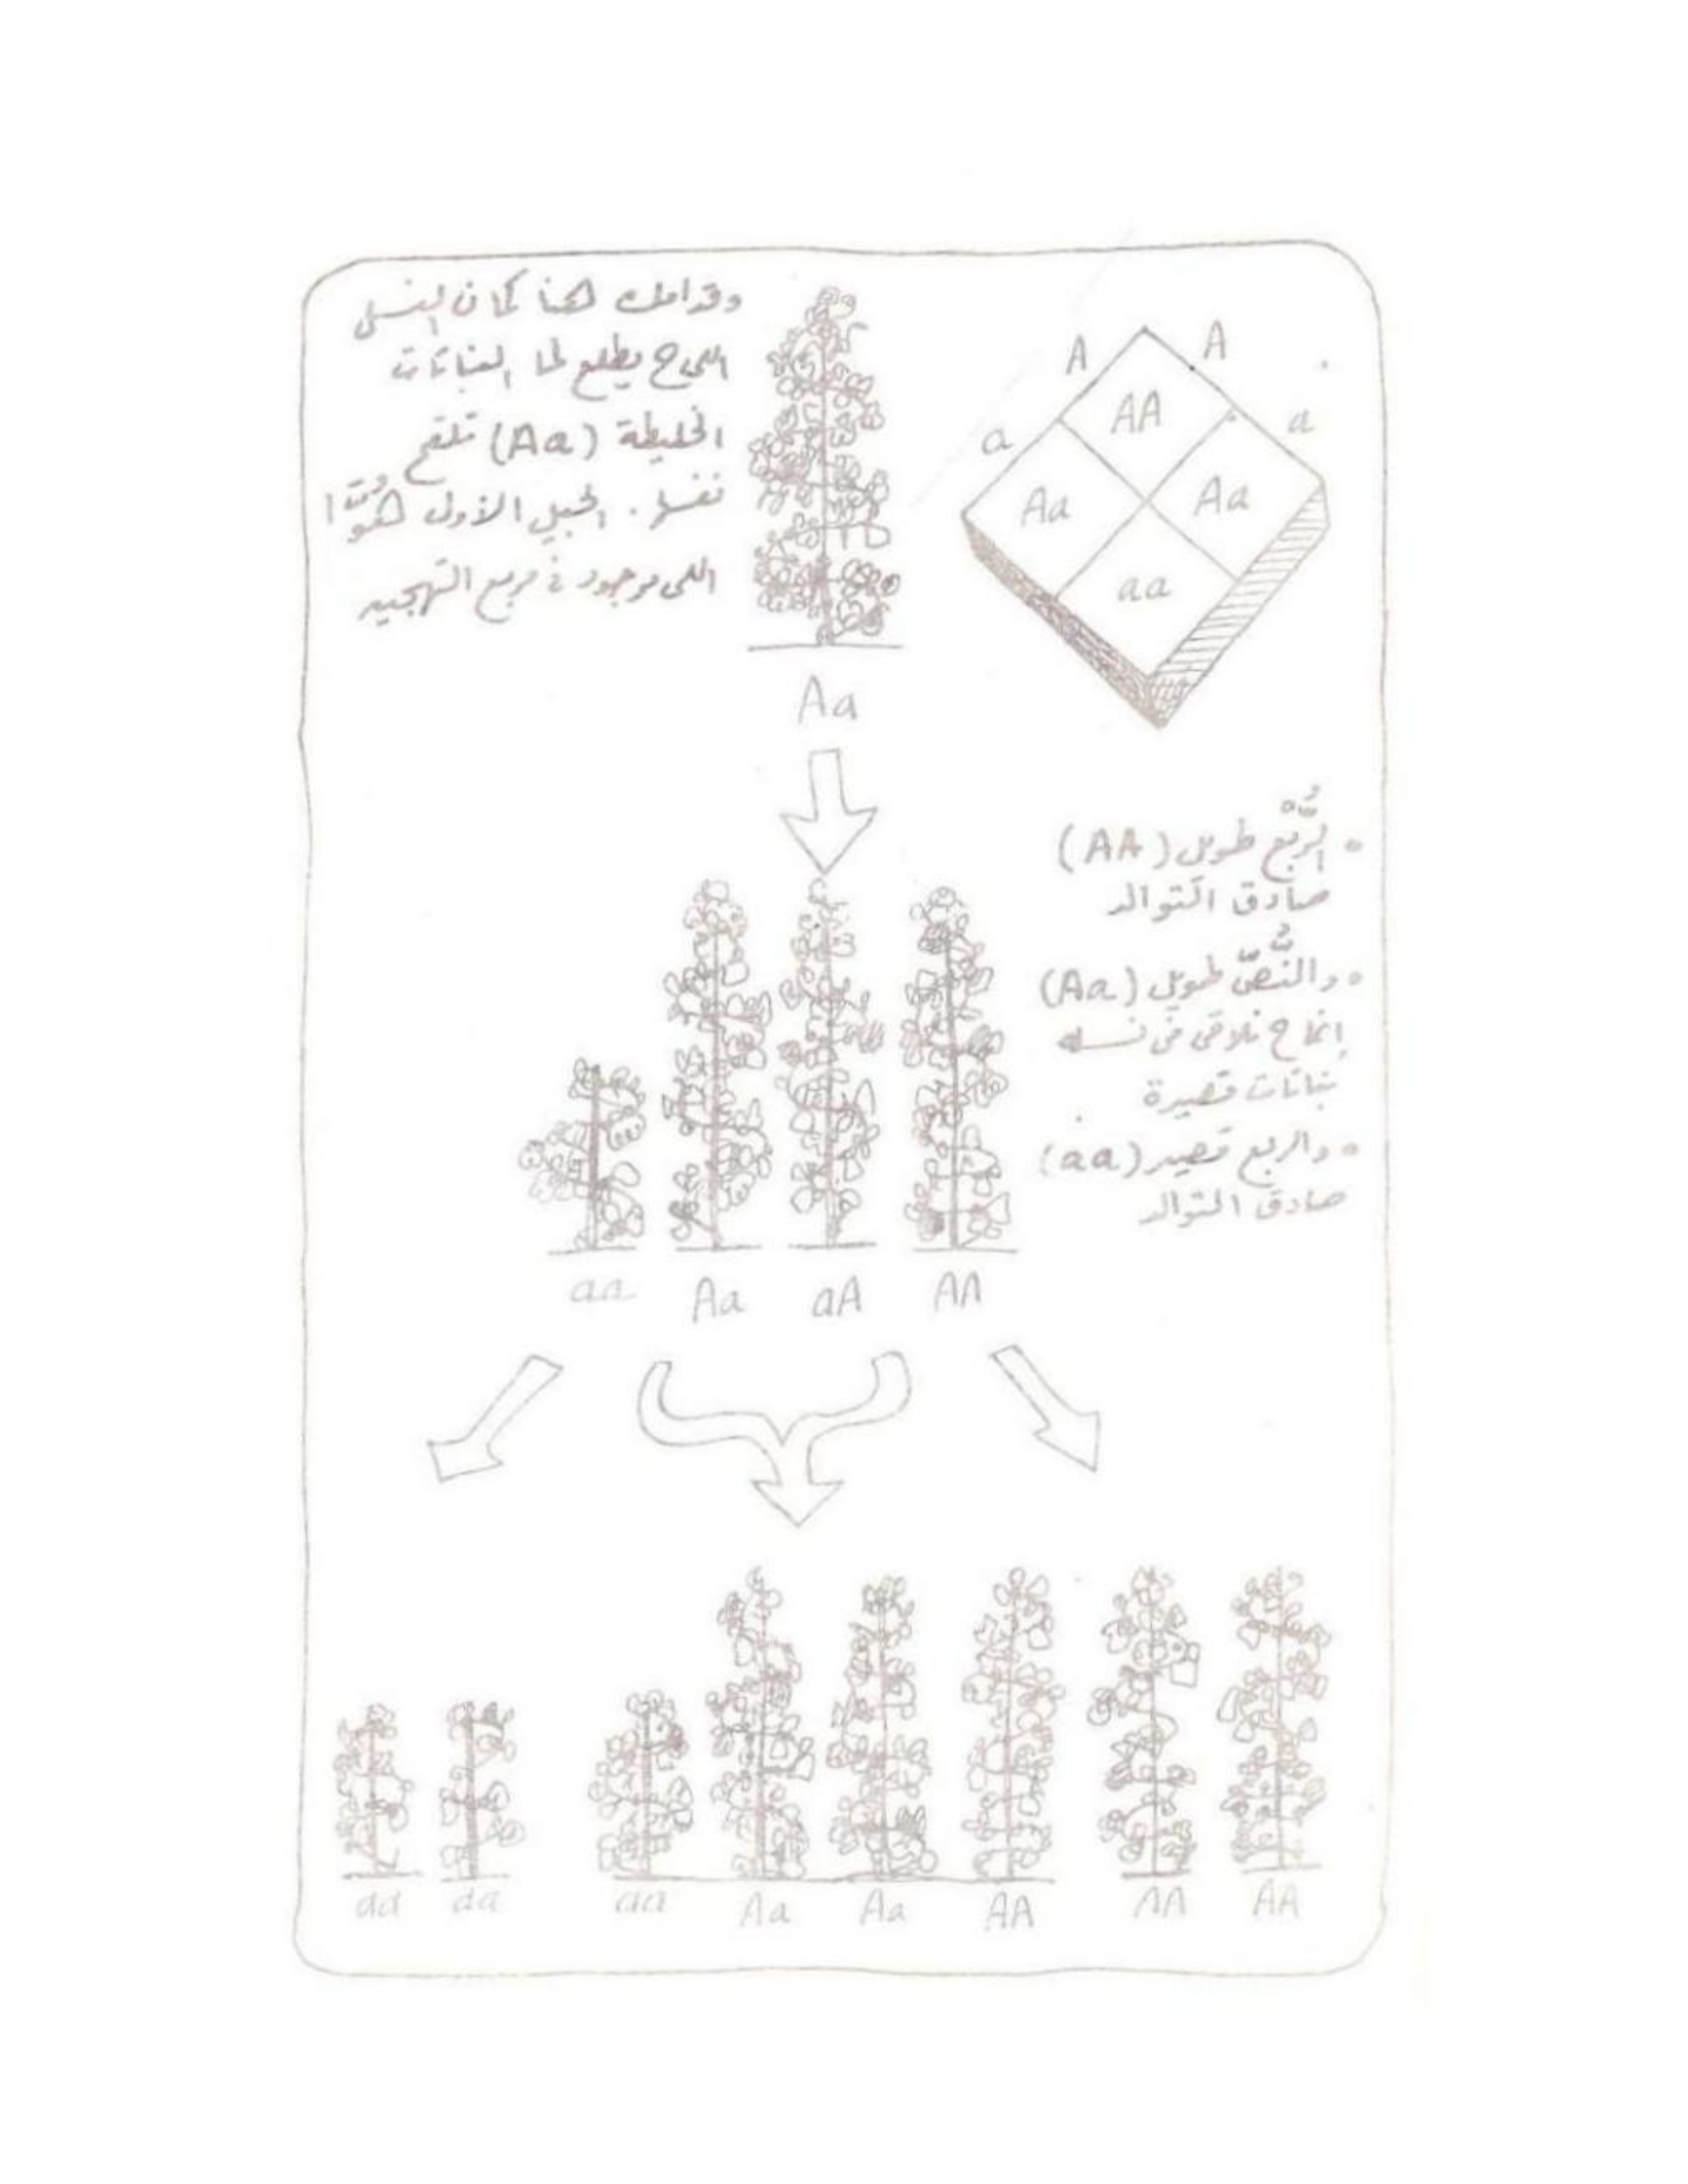 وقدامك هنا كمان النسل
اللي ح يطلع لما النباتات
الخليطة (Aa) تلقح
نفسها. الجيل الأول هُوَّا
اللي موجود في مربع التهجين
A
A
a
a
AA
Aa
Aa
aa
Aa
• الرُّبْع طويل (AA)
صادق التوالد
• والنُّصّ طويل (Aa)
إنما ح نلاقي في نسله
نباتات قصيرة
• والربع قصير (aa)
صادق التوالد
aa Aa aA AA
aa aa aa Aa Aa AA AA AA